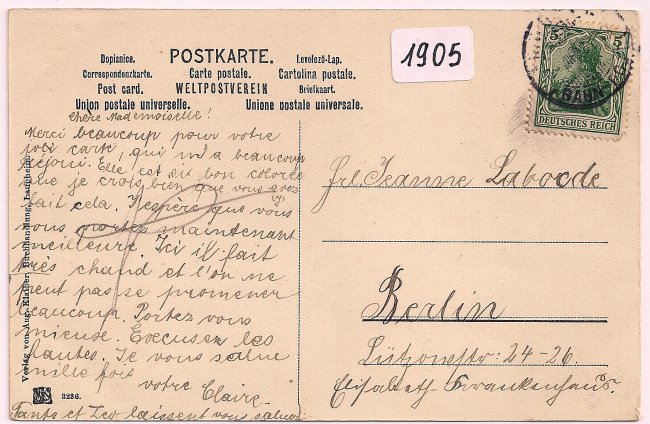 Dopisnice.
POSTKARTE.
Levelező-Lap.
Correspondenzkarte.
Carte postale.
Cartolina postale.
Post card.
WELTPOSTVEREIN
Briefkaart.
Union postale universelle.
Unione postale universale.
1905
5 5
DEUTSCHES REICH
BAHN
Chère Mademoiselle!
Merci beaucoup pour votre
joli cart, qui m'a beaucoup
réjoui. Elle est su bon colorée
que je crois bien que vous avez
fait cela. J'espère que vous
vous portez maintenant
meilleure. Ici il fait
très chaud et l'on ne
peut pas se promener
beaucoup. Portez vous
mieuse. Excusez les
fautes. Je vous salue
mille fois
votre Claire.
Tante et Leo laissent vous saluer
Frl. Jeanne Laborde
Berlin
Lützowstr: 24-26.
Elisabeth Krankenhaus.
Verlag von Aug. Klather, Buchhandlung,
3236.